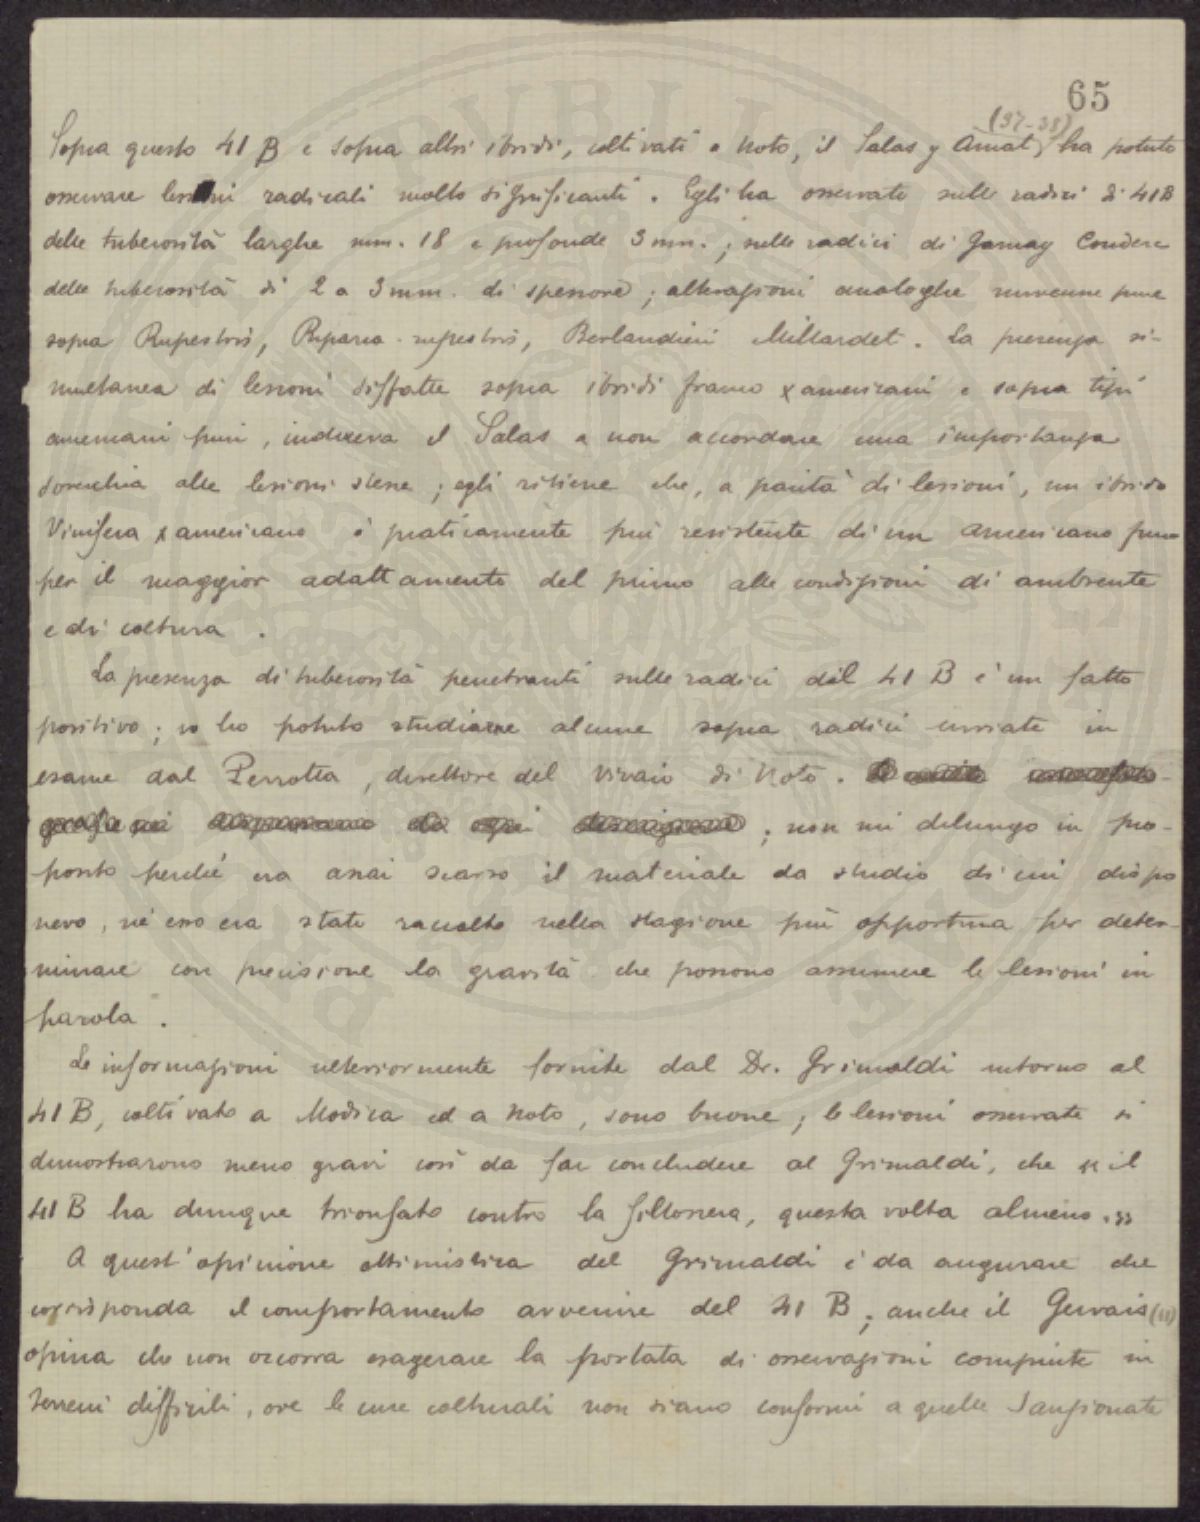 65
(37-38)
Sopra questo 41 B e sopra altri ibridi, coltivati a Noto, il Salas y Amat, ha potuto
osservare lesioni radicali molto significanti. Egli ha osservato sulle radici di 41B
delle tuberosità larghe mm. 18 e profonde 3 mm.; sulle radici di Gamay Couderc
delle tuberosità di 2 a 3 mm. di spessore; alterazioni analoghe rinvenne pure
sopra Rupestris, Riparia-rupestris, Berlandieri Millardet. La presenza si-
multanea di lesioni siffatte sopra ibridi franco x americani e sopra tipi
americani puri, induceva il Salas a non accordare una importanza
soverchia alle lesioni stesse; egli ritiene che, a parità di lesioni, un ibrido
Vinifera x americano è praticamente più resistente di un americano puro
per il maggior adattamento del primo alle condizioni di ambiente
e di coltura.
La presenza di tuberosità penetranti sulle radici del 41 B è un fatto
positivo; io ho potuto studiarne alcune sopra radici inviate in
esame dal Perrotta, direttore del vivaio di Noto.
; non mi dilungo in pro-
posito perché era assai scarso il materiale da studio di cui dispo
nevo, nè esso era stato raccolto nella stagione più opportuna per deter-
minare con precisione la gravità che possono assumere le lesioni in
parola.
Le informazioni ulteriormente fornite dal Dr. Grimaldi intorno al
41 B, coltivato a Modica ed a Noto, sono buone; le lesioni osservate si
dimostrarono meno gravi così da far concludere al Grimaldi, che « il
41 B ha dunque trionfato contro la fillossera, questa volta almeno. »
A quest'opinione ottimistica del Grimaldi è da augurare che
corrisponda il comportamento avvenire del 41 B; anche il Gervais (11)
opina che non occorra esagerare la portata di osservazioni compiute in
terreni difficili, ove le cure colturali non siano conformi a quelle sanzionate